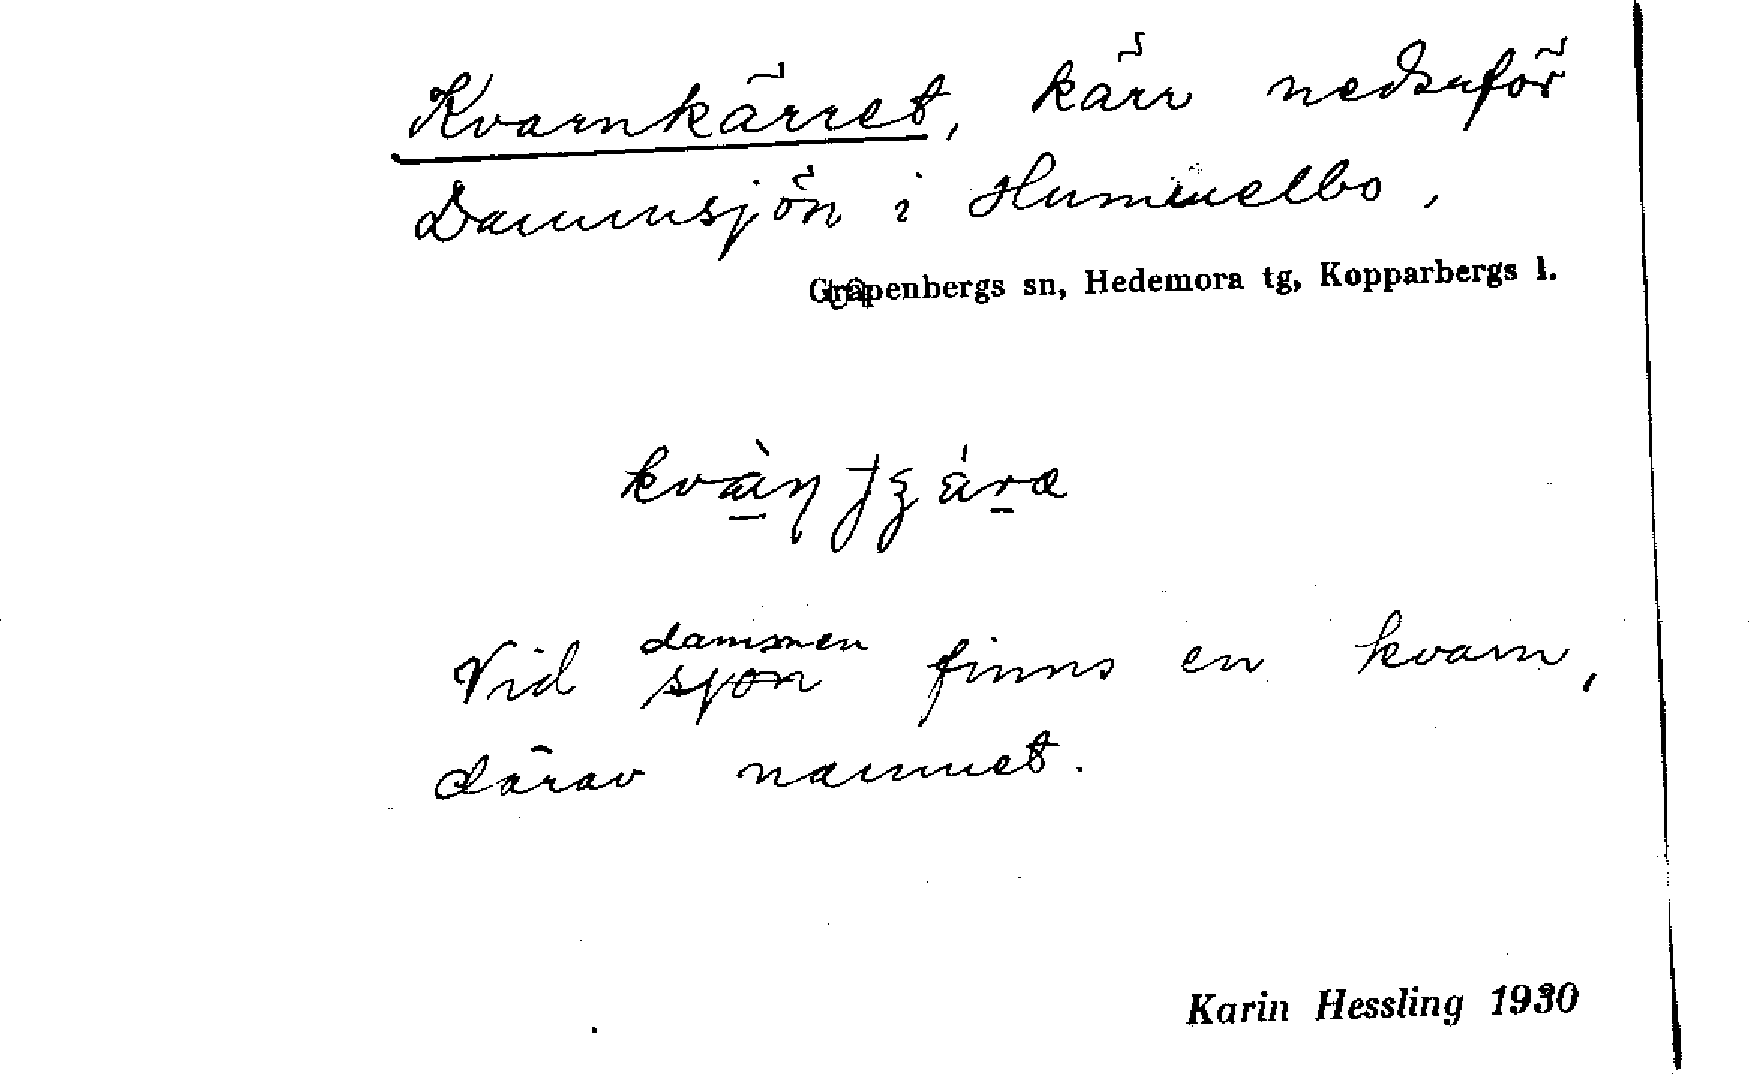 Kvarnkärret, kärr nedanför
Dammsjön i Hummelbo,
Grapenbergs sn, Hedemora tg, Kopparbergs l.
Vid dammen sjön finns en kvarn,
därav namnet.
Karin Hessling 1930